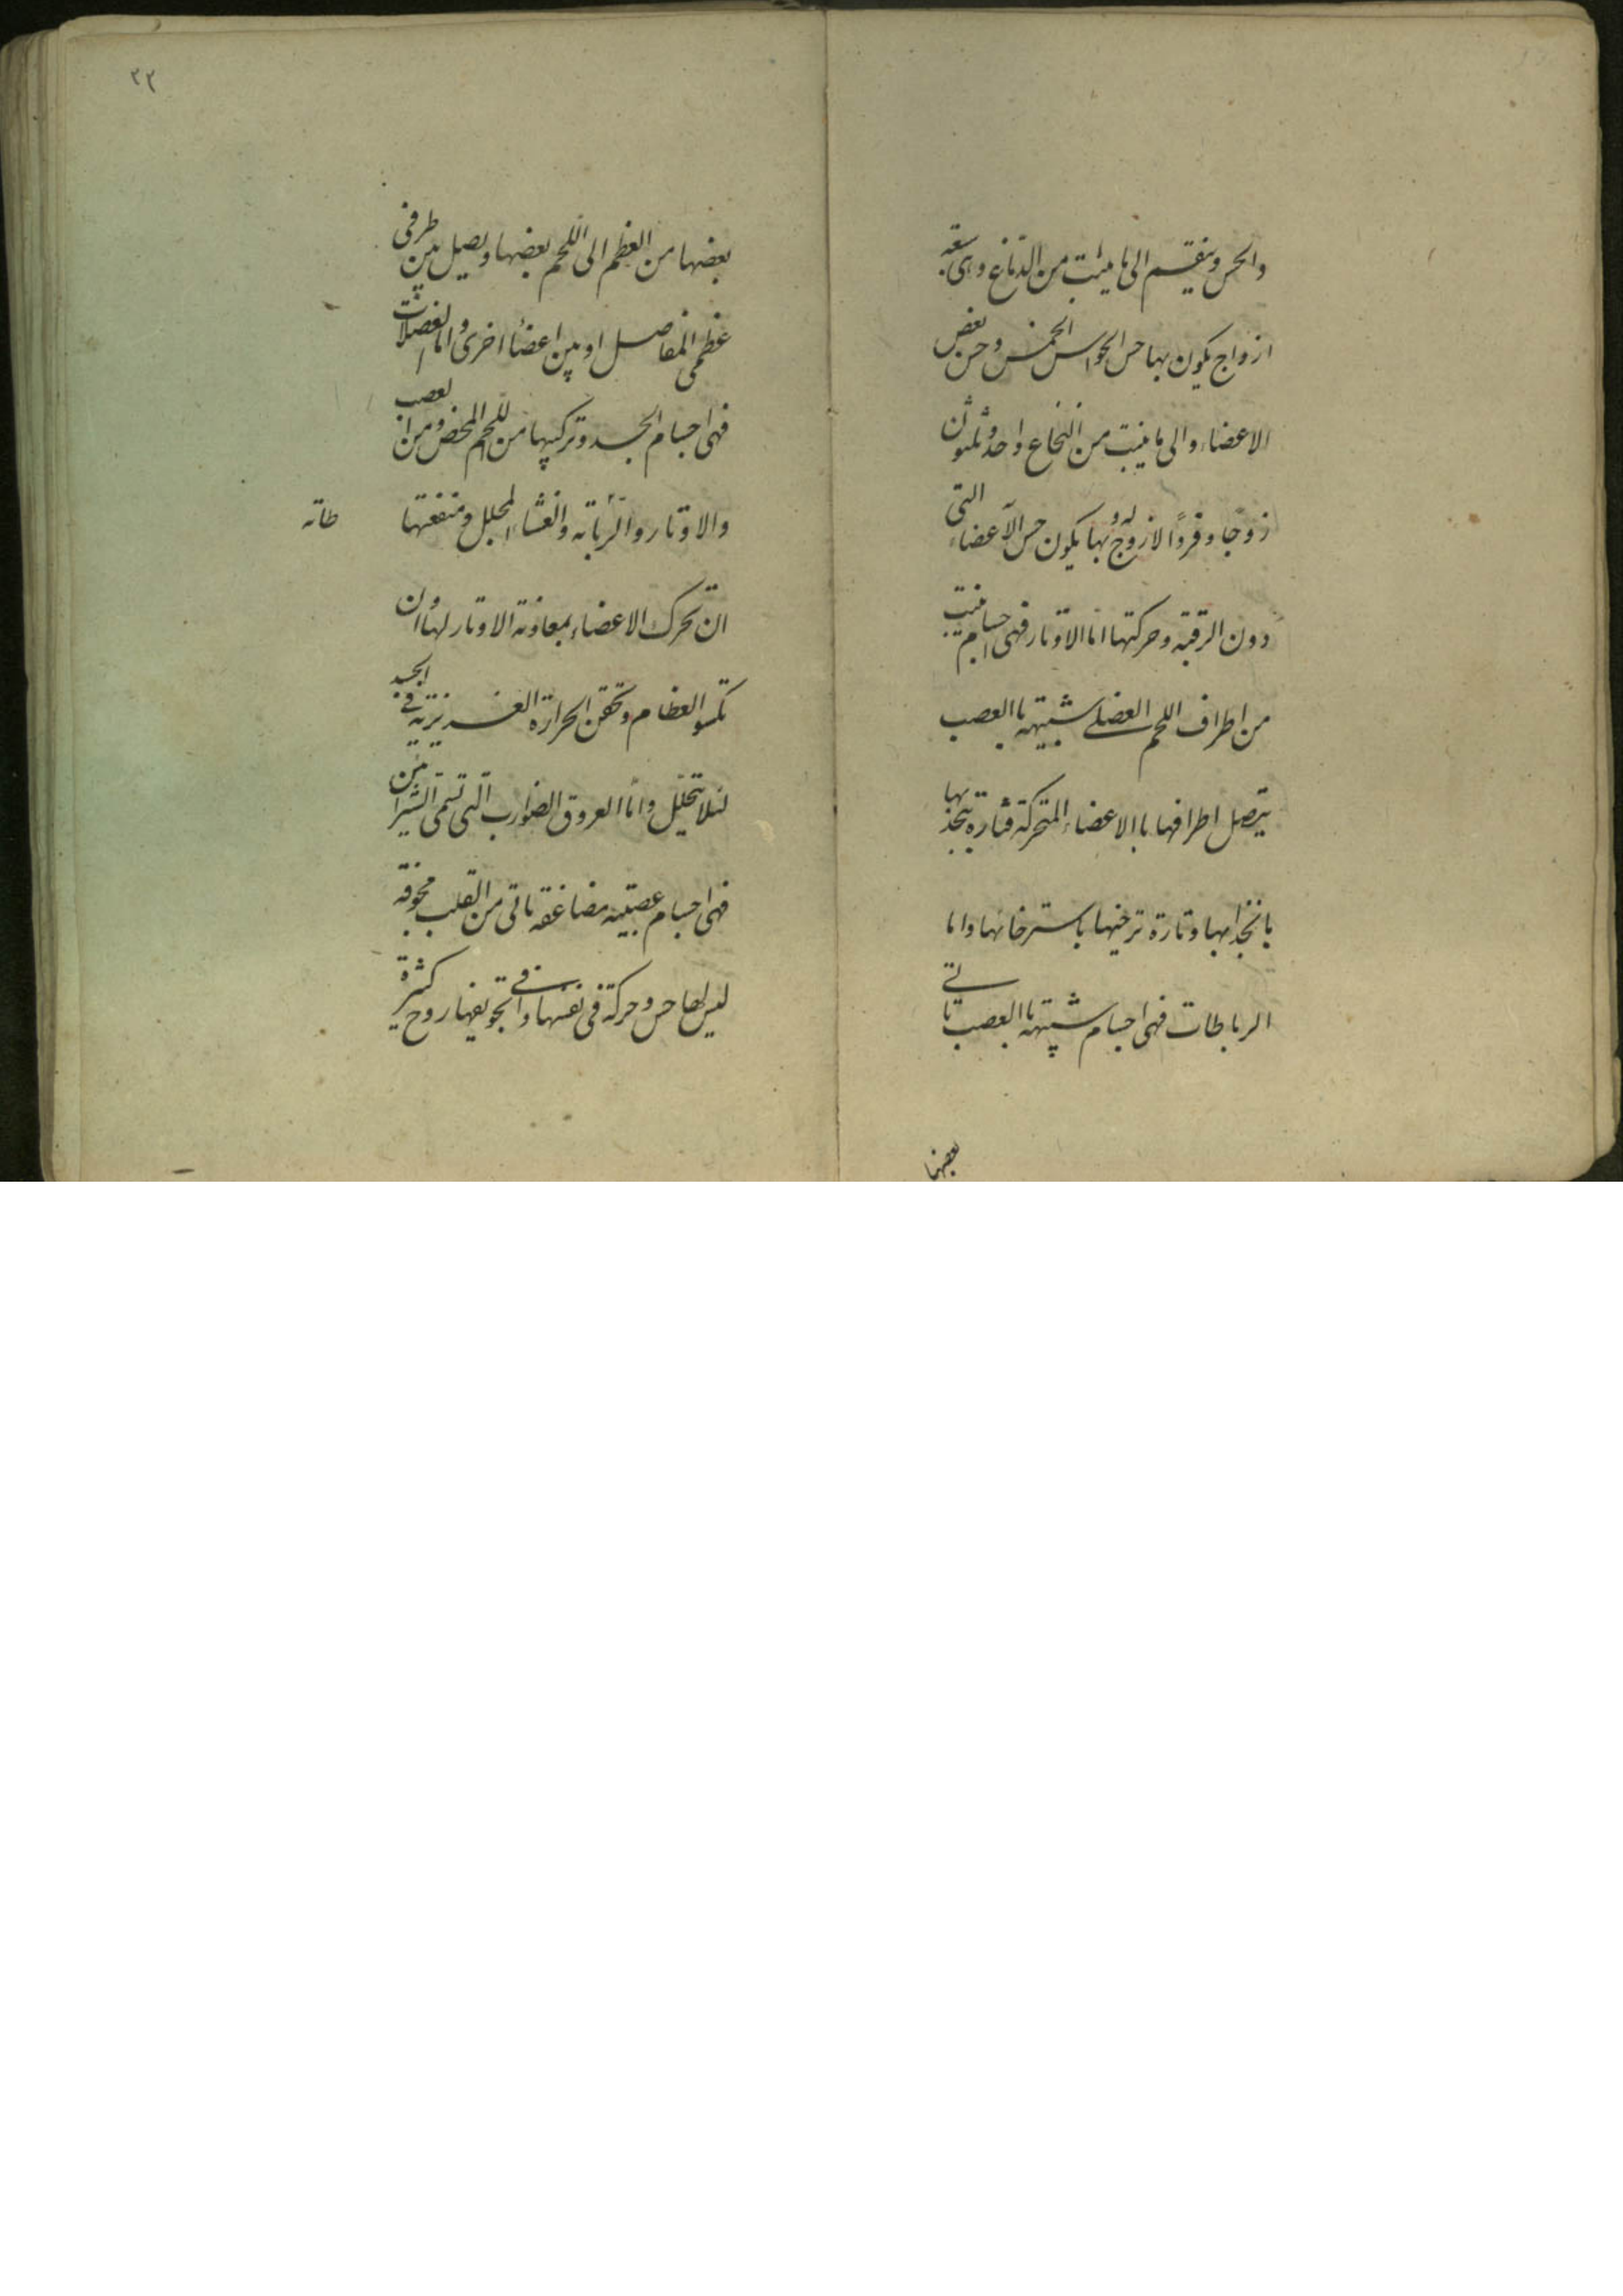 والحس وينقسم الى ما ينبت من الدماغ وهى سبعة
ازواج يكون بها حس الحواس الخمس وحس بعض
الاعضاء والى ما ينبت من النخاع واحد وثلثون
زوجا وفردا لا زوج له وبها يكون حس الاعضاء التى
دون الرقبة وحركتها اما الاوتار فهى اجسام ينبت
من اطراف اللحم العضلے شبيهه باالعصب
يتصل اطرافها باالاعضاء المتحركة فتارة يتجذبها
بانجذابها وتارة ترخيها باسترخائها واما
الرباطات فهى اجسام شبيهه باالعصب تاتے
بعضها
٢٢
بعضها من العظم الى اللحم بعضها ويصيل بين طرفى
عظمى المفاصل او بين اعضا اخرى واما العضلات
فهى اجسام الجسد وتركيبها من اللحم المحض ومن العصب
والاوتار والرباته والغشاء المجلل ومنفعتها
طاته
ان تحرك الاعضاء بمعاونة الاوتار لها وان
تكسوالعظام وتحقن الحرارة الغريزية فے الجسد
لئلا يتحلل واما العروق الضوارب التى تسمى الشرائين
فهى اجسام عصبية مضاعفة تاتى من القلب مجوفة
ليس لها حس وحركة فى نفسها وفے تجويفها روح كثيرة